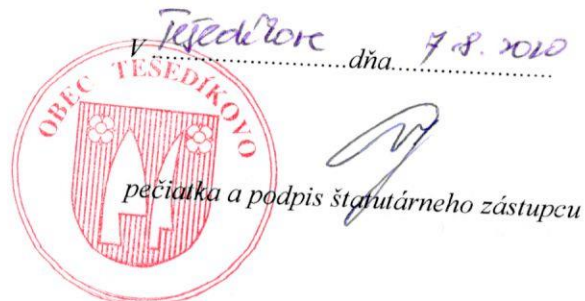 V Tešedíkove dňa 7. 8. 2020
OBEC TEŠEDÍKOVO
pečiatka a podpis štatutárneho zástupcu